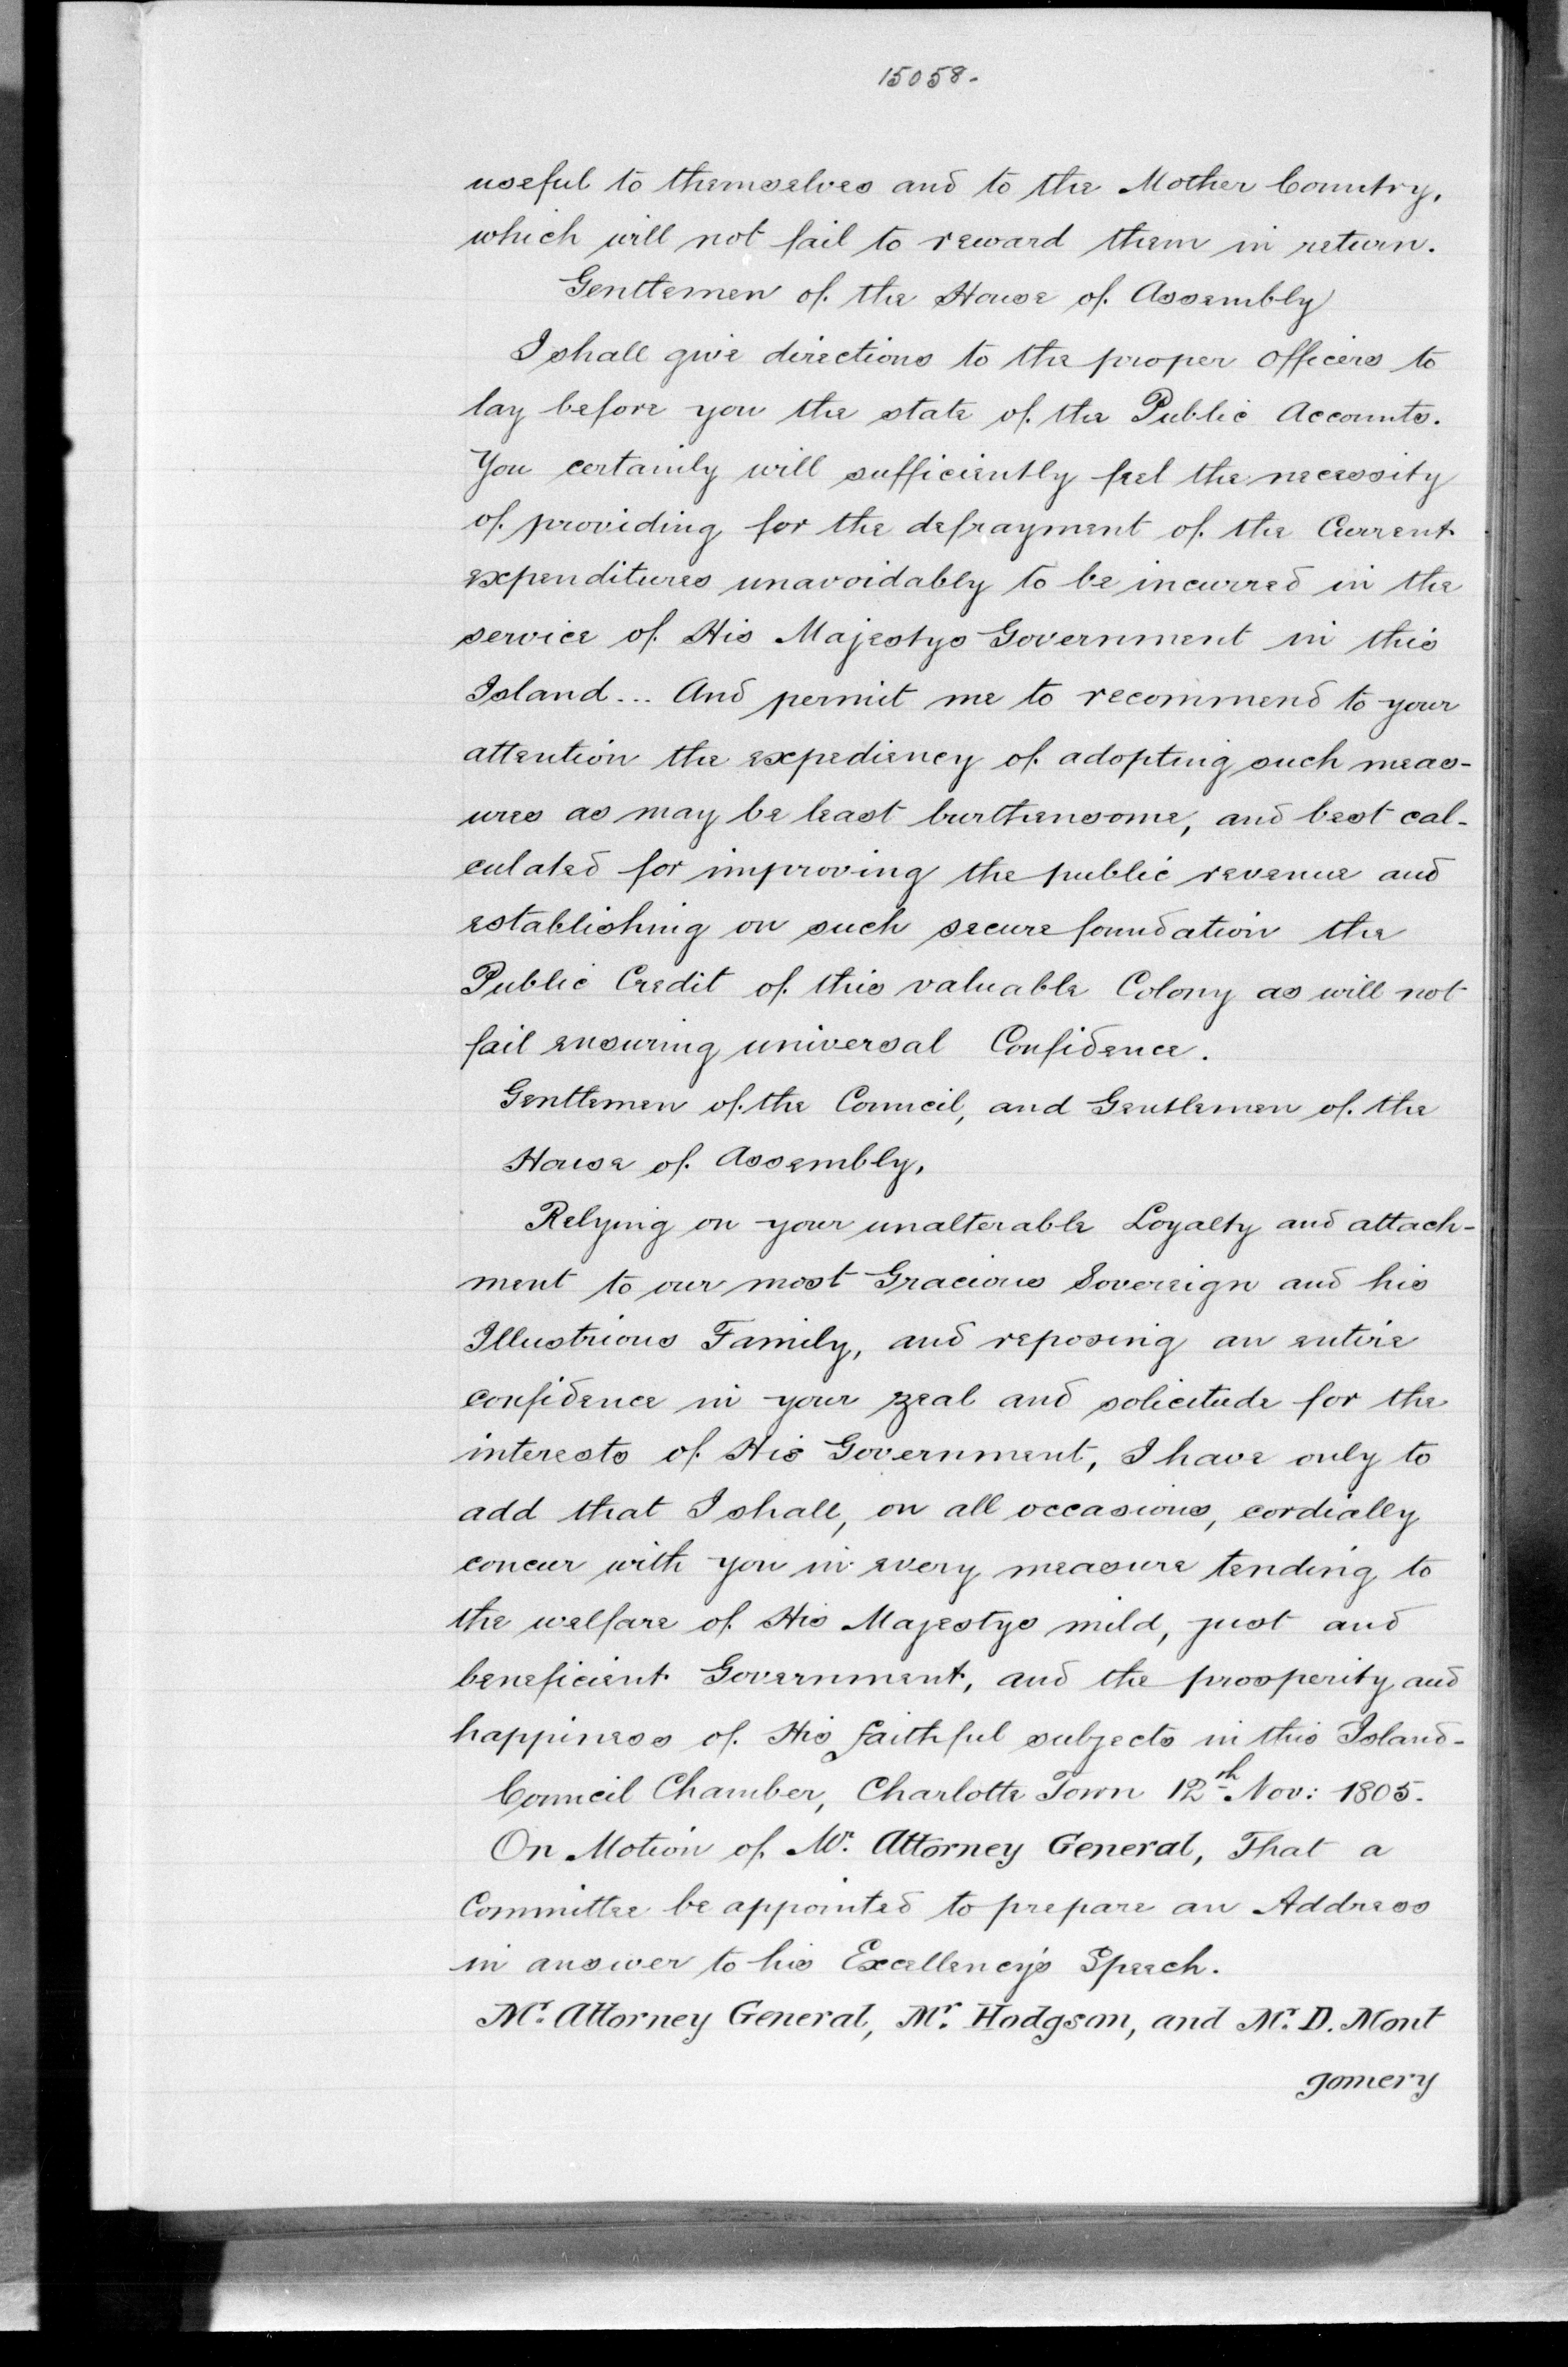 15058.
useful to themselves and to the Mother Country,
which will not fail to reward them in return.
Gentlemen of the House of Assembly
I shall give directions to the proper officers to
lay before you the state of the Public Accounts.
You certainly will sufficiently feel the necessity
of providing for the defrayment of the Current
expenditures unavoidably to be incurred in the
service of His Majestys Government in this
Island... And permit me to recommend to your
attention the expediency of adopting such meas-
ures as may be least burthensome, and best cal-
culated for improving the public revenue and
establishing on such secure foundation the
Public Credit of this valuable Colony as will not
fail ensuring universal Confidence.
Gentlemen of the Council, and Gentlemen of the
House of Assembly,
Relying on your unalterable Loyalty and attach-
ment to our most Gracious Sovereign and his
Illustrious Family, and reposing an entire
confidence in your zeal and solicitude for the
interests of His Government, I have only to
add that I shall, on all occasions, cordially
concur with you in every measure tending to
the welfare of His Majestys mild, just and
beneficient Government, and the prosperity and
happiness of His faithful subjects in this Island-
Council Chamber, Charlotte Town 12th Nov: 1805.
On Motion of Mr. Attorney General, That a
Committee be appointed to prepare an Address
in answer to his Excellency's Speech.
Mr. Attorney General, Mr. Hodgson, and Mr. D. Mont
gomery